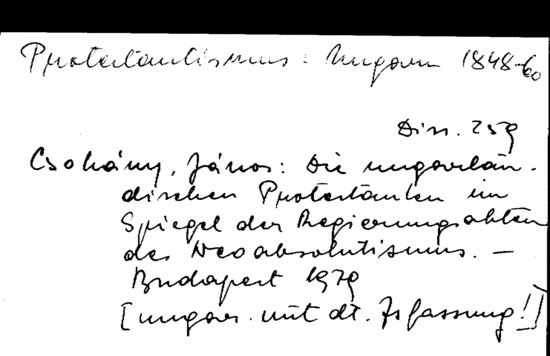 Protestantismus: Ungarn 1848-60
Diss. 259
Csohány, János: Die ungarlän-
dischen Protestanten im
Spiegel der Regierungsakten
des Neoabsolutismus. —
Budapest 1979
[ungar. mit dt. Zsfassung!]